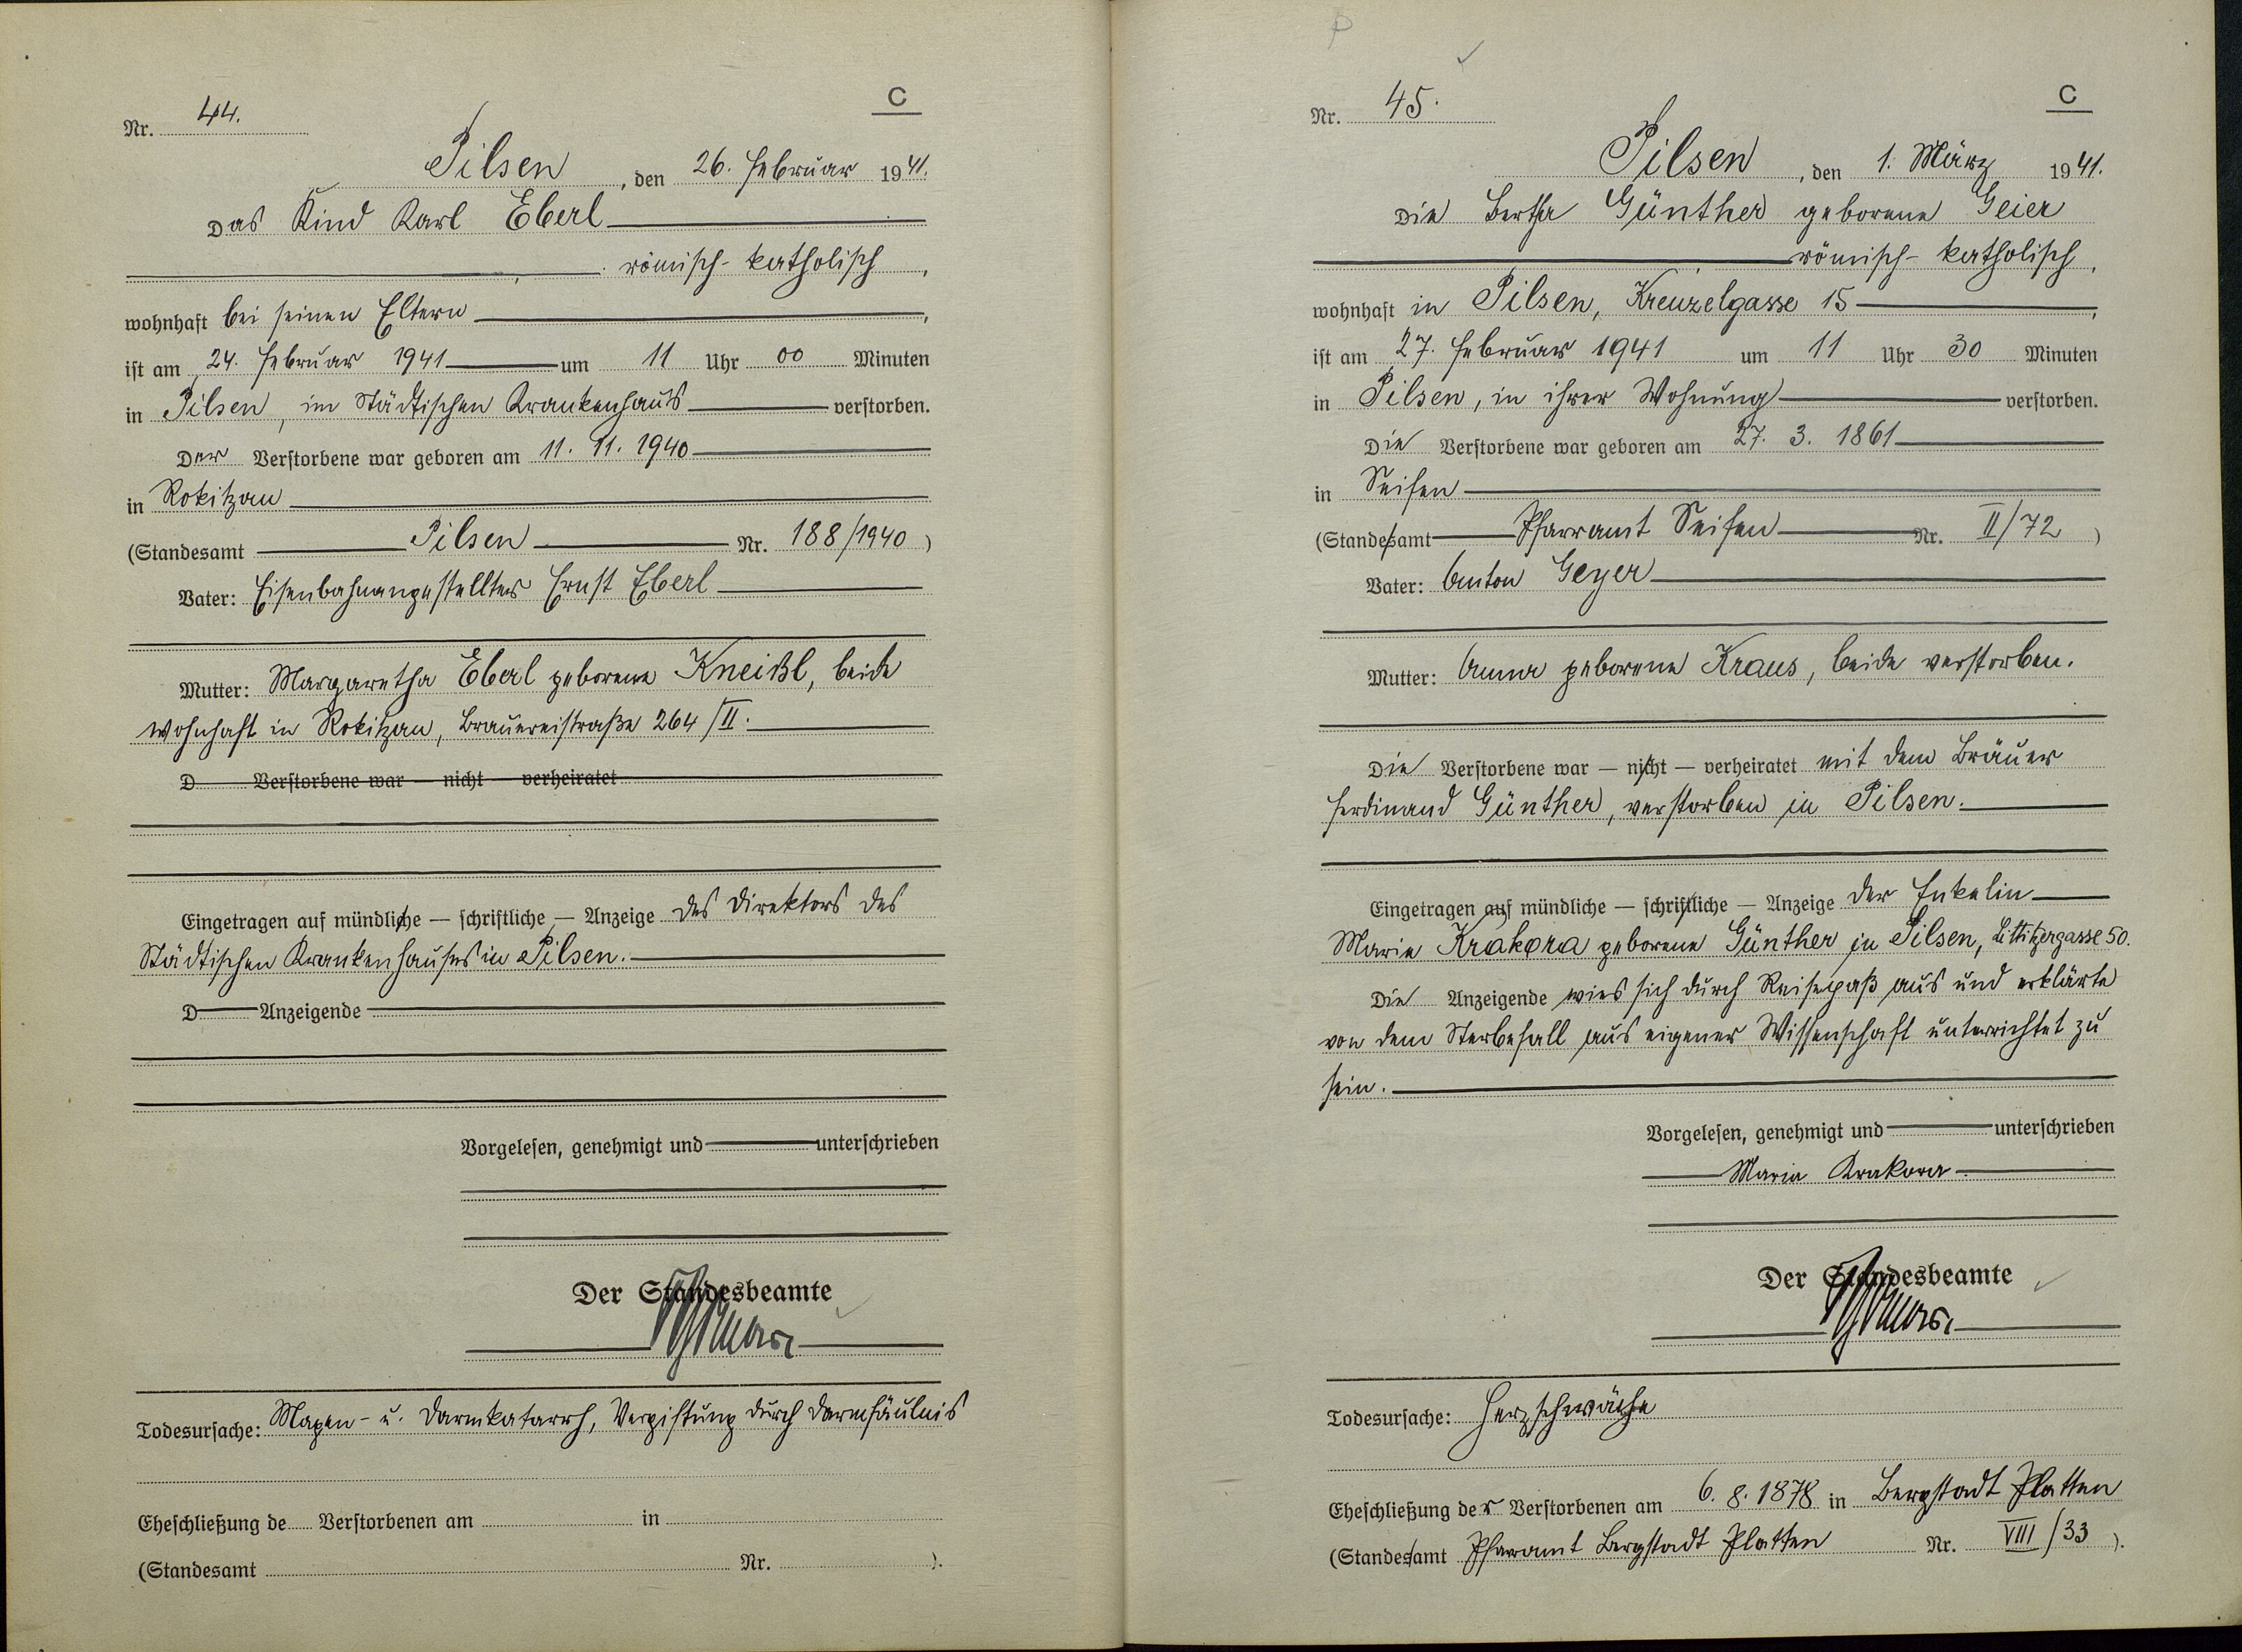 C
Nr. 44.
Pilsen, den 26. Februar 1941.
Das Kind Karl Eberl
römisch-katholisch,
wohnhaft bei seinen Eltern,
ist am 24. Februar 1941 um 11 Uhr 00 Minuten
in Pilsen, im Städtischen Krankenhaus verstorben.
Der Verstorbene war geboren am 11. 11. 1940
in Rokitzan
(Standesamt Pilsen Nr. 188/1940)
Vater: Eisenbahnangestellter Ernst Eberl
Mutter: Margaretha Eberl geborene Kneißl, beide
wohnhaft in Rokitzan, Brauereistraße 264/II.
D Verstorbene war — nicht — verheiratet
Eingetragen auf mündliche — schriftliche — Anzeige des Direktors des
Städtischen Krankenhauses in Pilsen.
D Anzeigende
Vorgelesen, genehmigt und unterschrieben
Der Standesbeamte
Todesursache: Magen- u. Darmkatarrh, Vergiftung durch Darmfäulnis
Eheschließung de Verstorbenen am in
(Standesamt Nr. ).
C
Nr. 45.
Pilsen, den 1. März 1941.
Die Bertha Günther geborene Geier
römisch-katholisch,
wohnhaft in Pilsen, Kreuzelgasse 15,
ist am 27. Februar 1941 um 11 Uhr 30 Minuten
in Pilsen, in ihrer Wohnung verstorben.
Die Verstorbene war geboren am 27. 3. 1861
in Seifen
(Standesamt Pfarramt Seifen Nr. II/72)
Vater: Anton Geyer
Mutter: Anna geborene Kraus, beide verstorben.
Die Verstorbene war — nicht — verheiratet mit dem Bräuer
Ferdinand Günther, verstorben in Pilsen.
Eingetragen auf mündliche — schriftliche — Anzeige der Enkelin
Marie Krakora geborene Günther in Pilsen, Littitzergasse 50.
Die Anzeigende wies sich durch Reisepaß aus und erklärte
von dem Sterbefall aus eigener Wissenschaft unterrichtet zu
sein.
Vorgelesen, genehmigt und unterschrieben
Maria Krakora
Der Standesbeamte
Todesursache: Herzschwäche
Eheschließung der Verstorbenen am 6. 8. 1878 in Bergstadt Platten
(Standesamt Pfarramt Bergstadt Platten Nr. VIII/33).